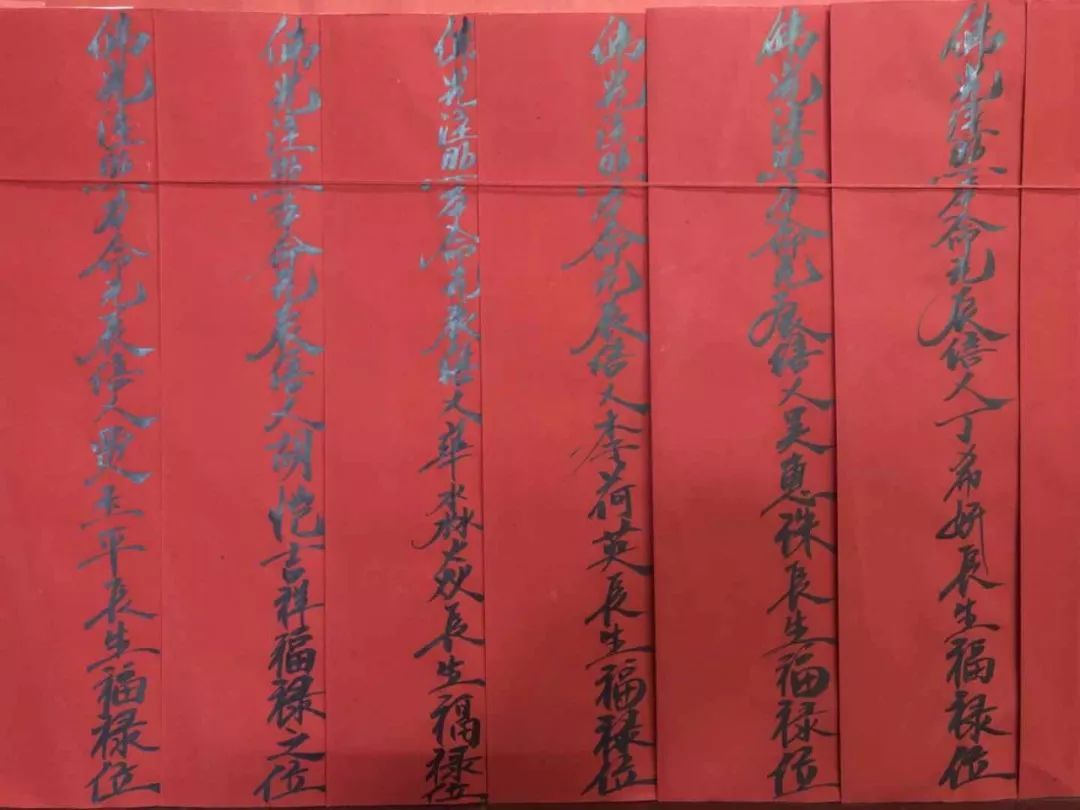 佛光注照本命元辰信人丁希妍長生福禄位
佛光注照本命元辰信人吴惠珠長生福禄位
佛光注照本命元辰信人李荷英長生福禄位
佛光注照本命元辰信人華淼焱長生福禄位
佛光注照本命元辰信人胡恺吉祥福禄之位
佛光注照本命元辰信人平長生福禄位